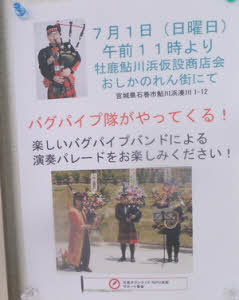 ７月１日（日曜日）
午前１１時より
牡鹿鮎川浜仮設商店会
おしかのれん街にて
宮城県石巻市鮎川浜湊川1-12
バグパイプ隊がやってくる！
楽しいバグパイプバンドによる
演奏パレードをお楽しみください！